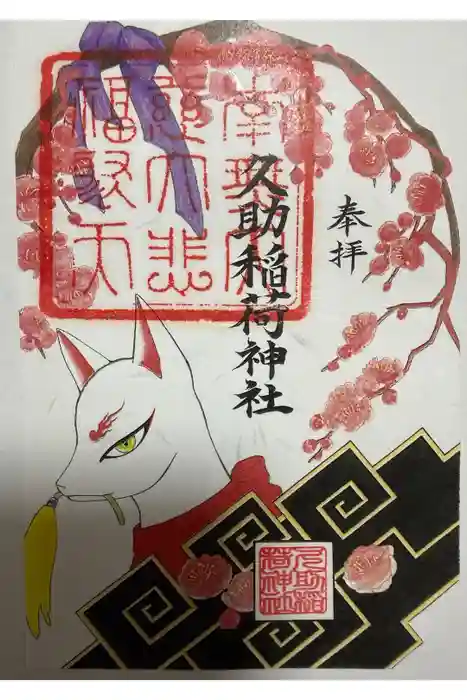 奉拝
久助稲荷神社
南無大
慈大悲
福聚天
久助稲
荷神社